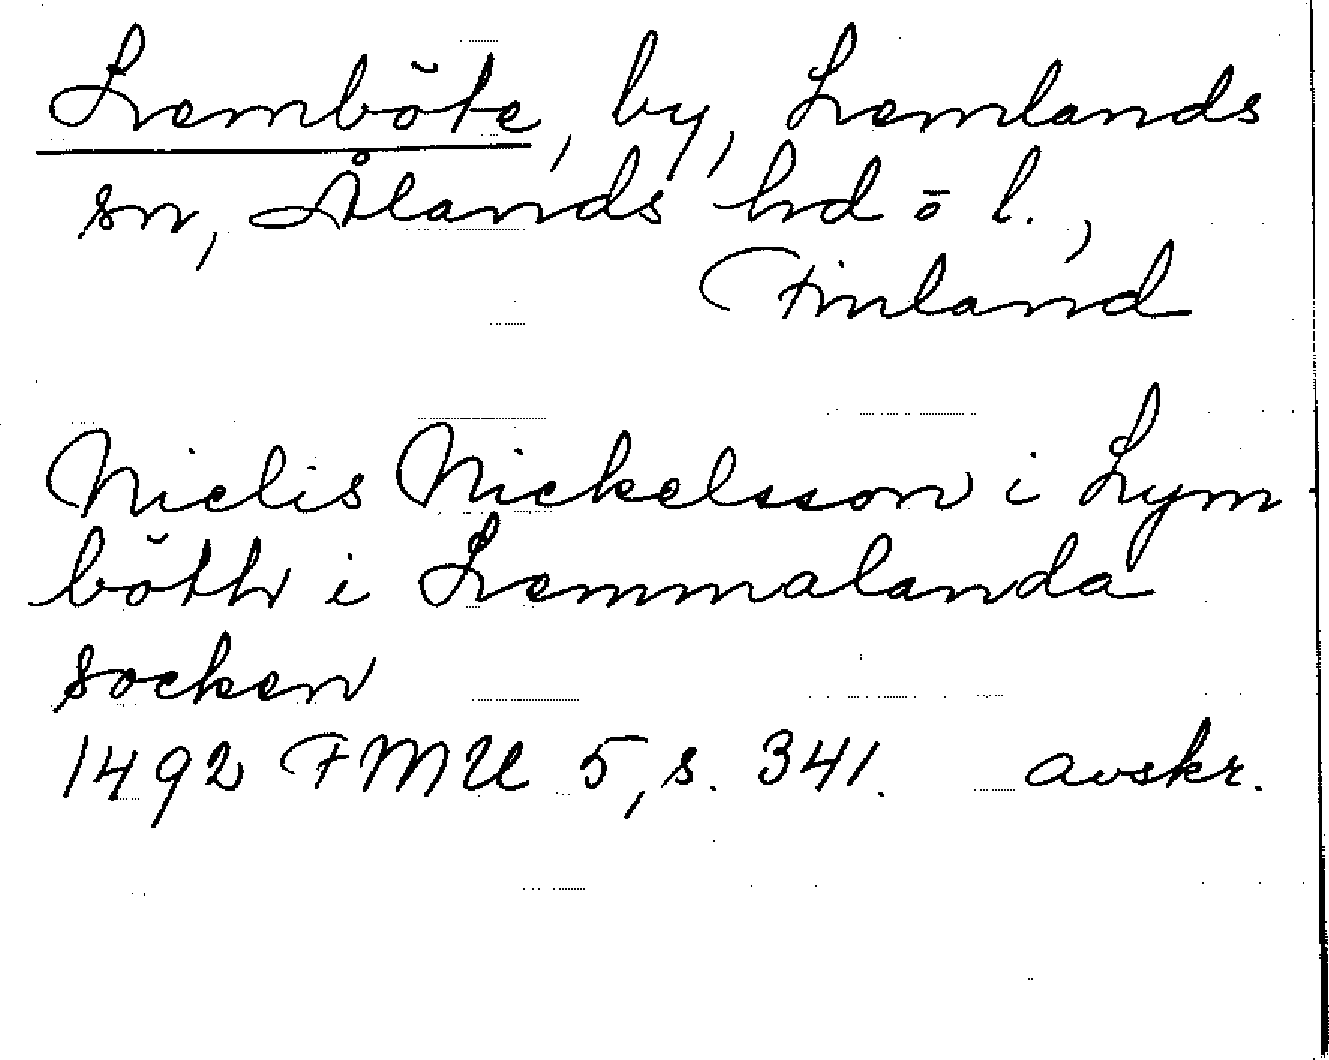 Lemböte, by, Lemlands
sn, Ålands hd o l.,
Finland
Nielis Nickelsson i Lym
böthe i Lemmalanda
socken
1492 FMU 5, s. 341. avskr.